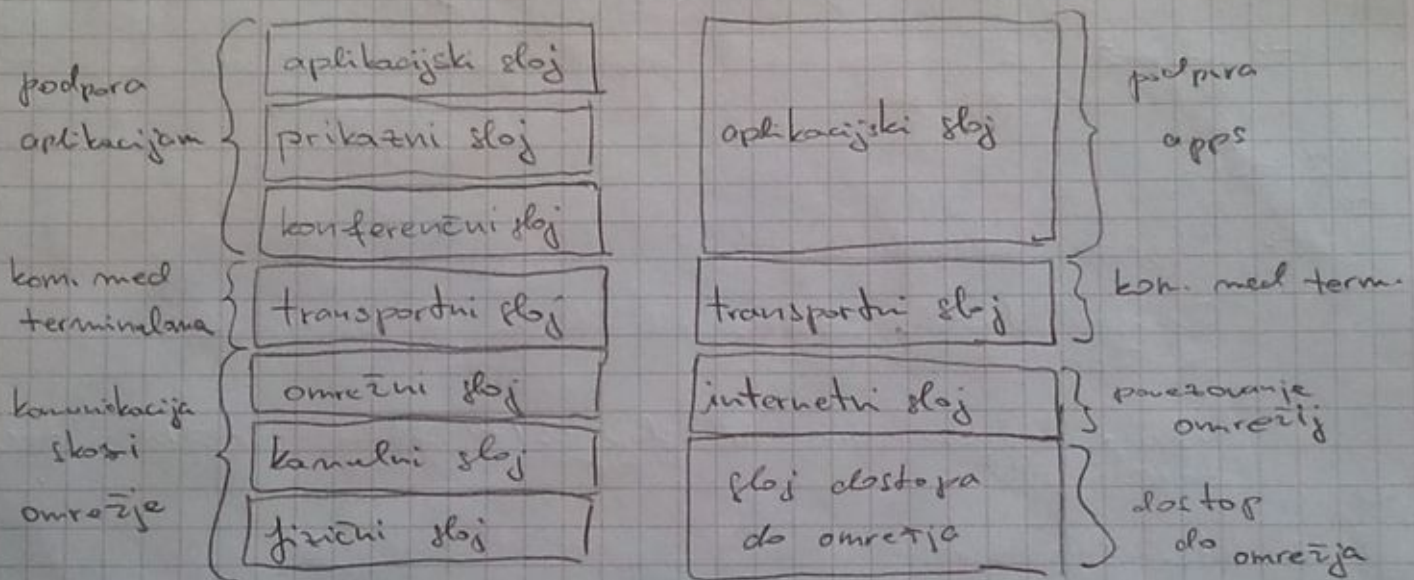 podpora
aplikacijam
aplikacijski sloj
prikazni sloj
konferenčni sloj
kom. med
terminaloma
transportni sloj
komunikacija
skozi
omrežje
omrežni sloj
kanalni sloj
fizični sloj
aplikacijski sloj
podpora
apps
transportni sloj
kom. med term.
internetni sloj
povezovanje
omrežij
sloj dostopa
do omrežja
dostop
do omrežja